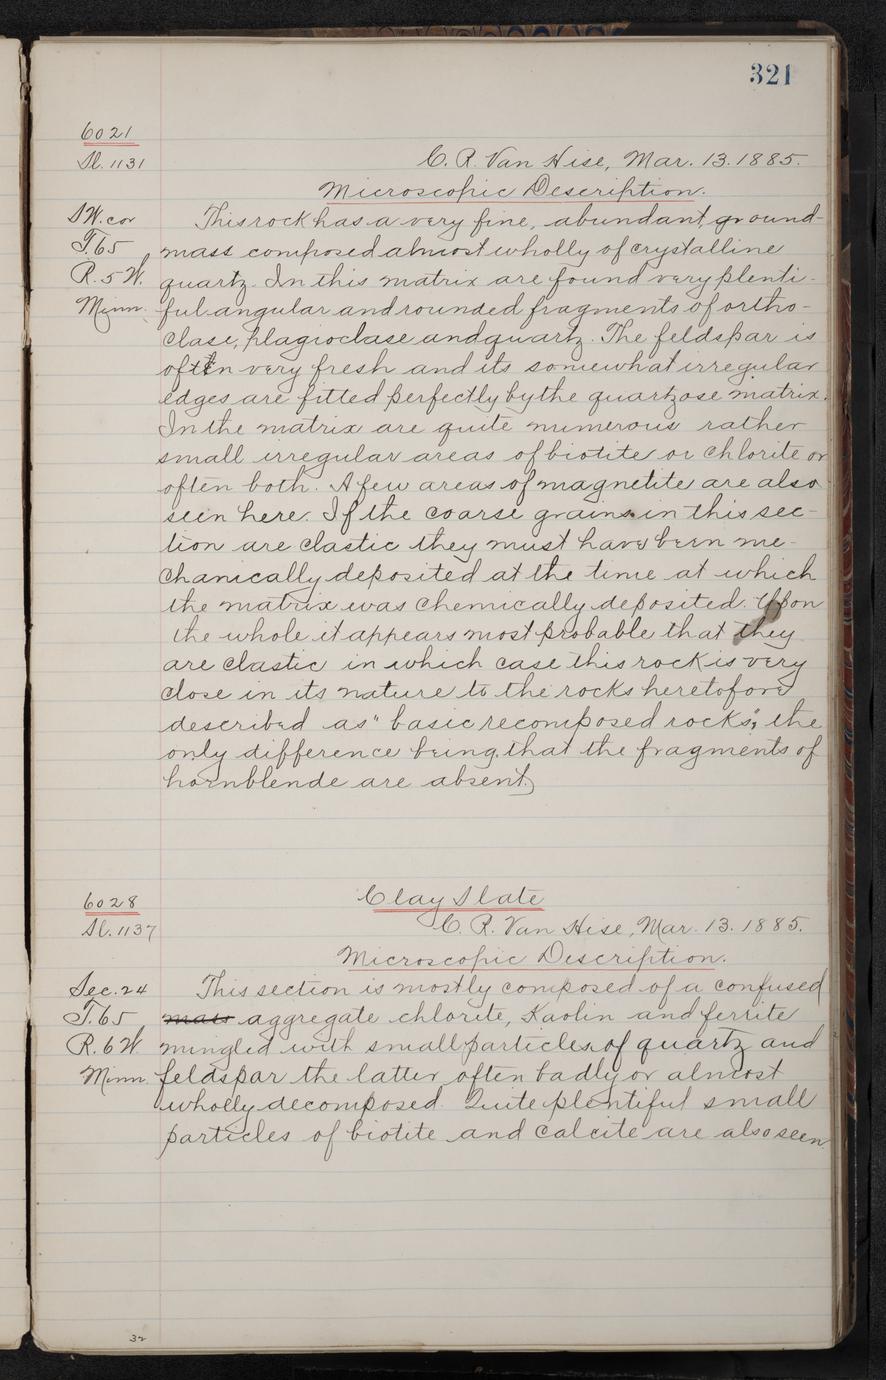 321
6021
Sl. 1131
C. R. Van Hise, Mar. 13. 1885.
Microscopic Description.
SW. cor
T. 65
R. 5 W.
Minn.
This rock has a very fine, abundant ground-
mass composed almost wholly of crystalline
quartz. In this matrix are found very plenti-
ful angular and rounded fragments of ortho-
clase, plagioclase and quartz. The feldspar is
often very fresh and its somewhat irregular
edges are fitted perfectly by the quartzose matrix.
In the matrix are quite numerous rather
small irregular areas of biotite or chlorite or
often both. A few areas of magnetite are also
seen here. If the coarse grains in this sec-
tion are clastic they must have been me-
chanically deposited at the time at which
the matrix was chemically deposited. Upon
the whole it appears most probable that they
are clastic in which case this rock is very
close in its nature to the rocks heretofore
described as "basic recomposed rocks", the
only difference being that the fragments of
hornblende are absent.
6028
Sl. 1137
Clay Slate
C. R. Van Hise, Mar. 13. 1885.
Microscopic Description.
Sec. 24
T. 65
R. 6 W
Minn.
This section is mostly composed of a confused
mass aggregate chlorite, Kaolin and ferrite
mingled with small particles of quartz and
feldspar the latter often badly or almost
wholly decomposed. Quite plentiful small
particles of biotite and calcite are also seen.
32